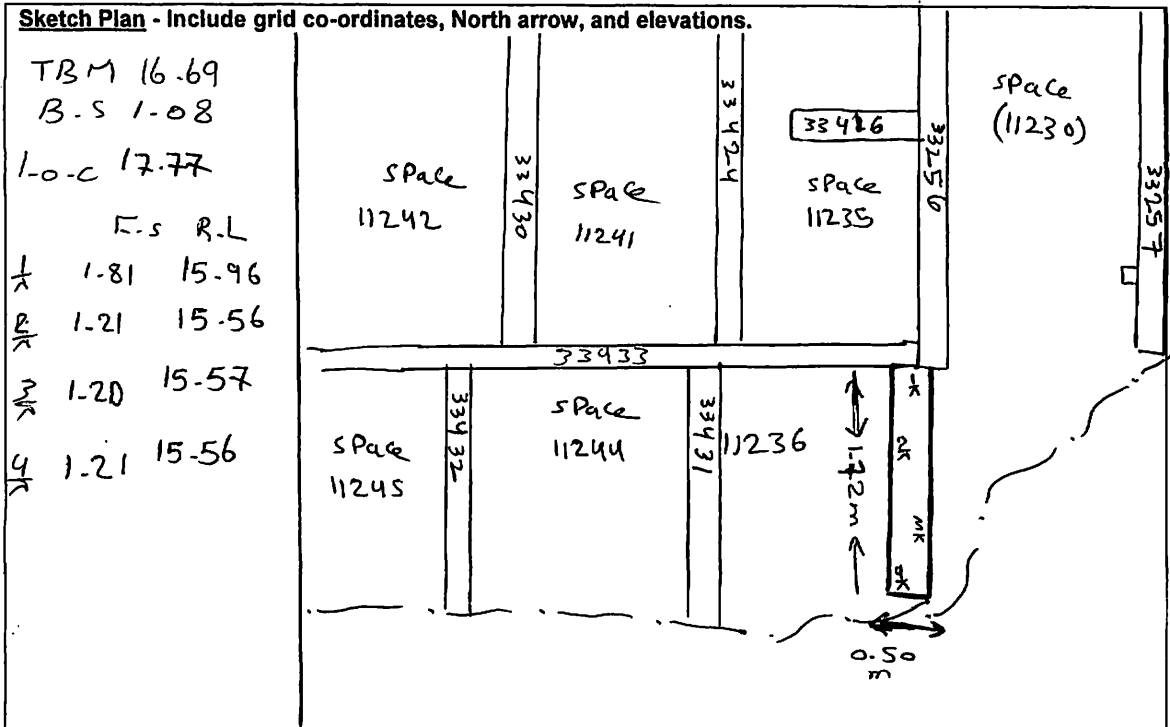 Sketch Plan - Include grid co-ordinates, North arrow, and elevations.
TBM 16.69
B.S 1.08
I-O-C 17.77
F.S R.L
1 1.81 15.96
2 1.21 15.56
3 1.20 15.57
4 1.21 15.56
space
11242
33430
space
11241
33424
33426
space
11235
33256
space
(11230)
33257
33433
space
11245
33432
space
11244
33431
11236
1.72m
1
2
3
4
0.50
m